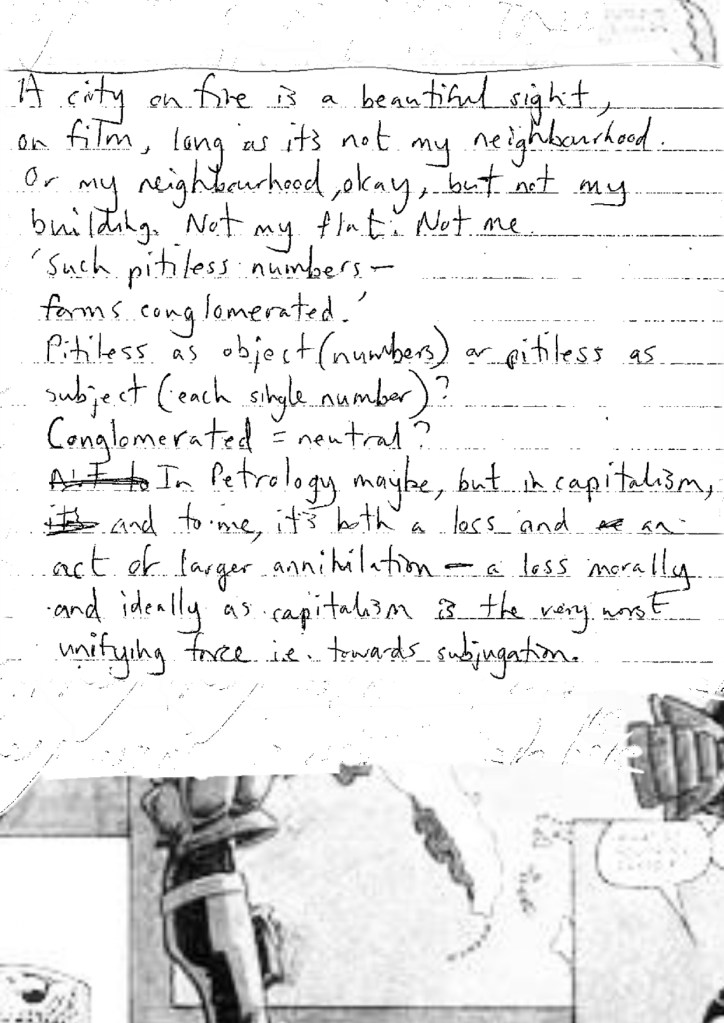 A city on fire is a beautiful sight,
on film, long as it's not my neighbourhood.
Or my neighbourhood, okay, but not my
building. Not my flat. Not me.
'Such pitiless numbers –
forms conglomerated.'
Pitiless as object (numbers) or pitiless as
subject (each single number)?
Conglomerated = neutral?
In Petrology maybe, but in capitalism,
and to me, it's both a loss and an
act of larger annihilation – a loss morally
and ideally as capitalism is the very worst
unifying force i.e. towards subjugation.